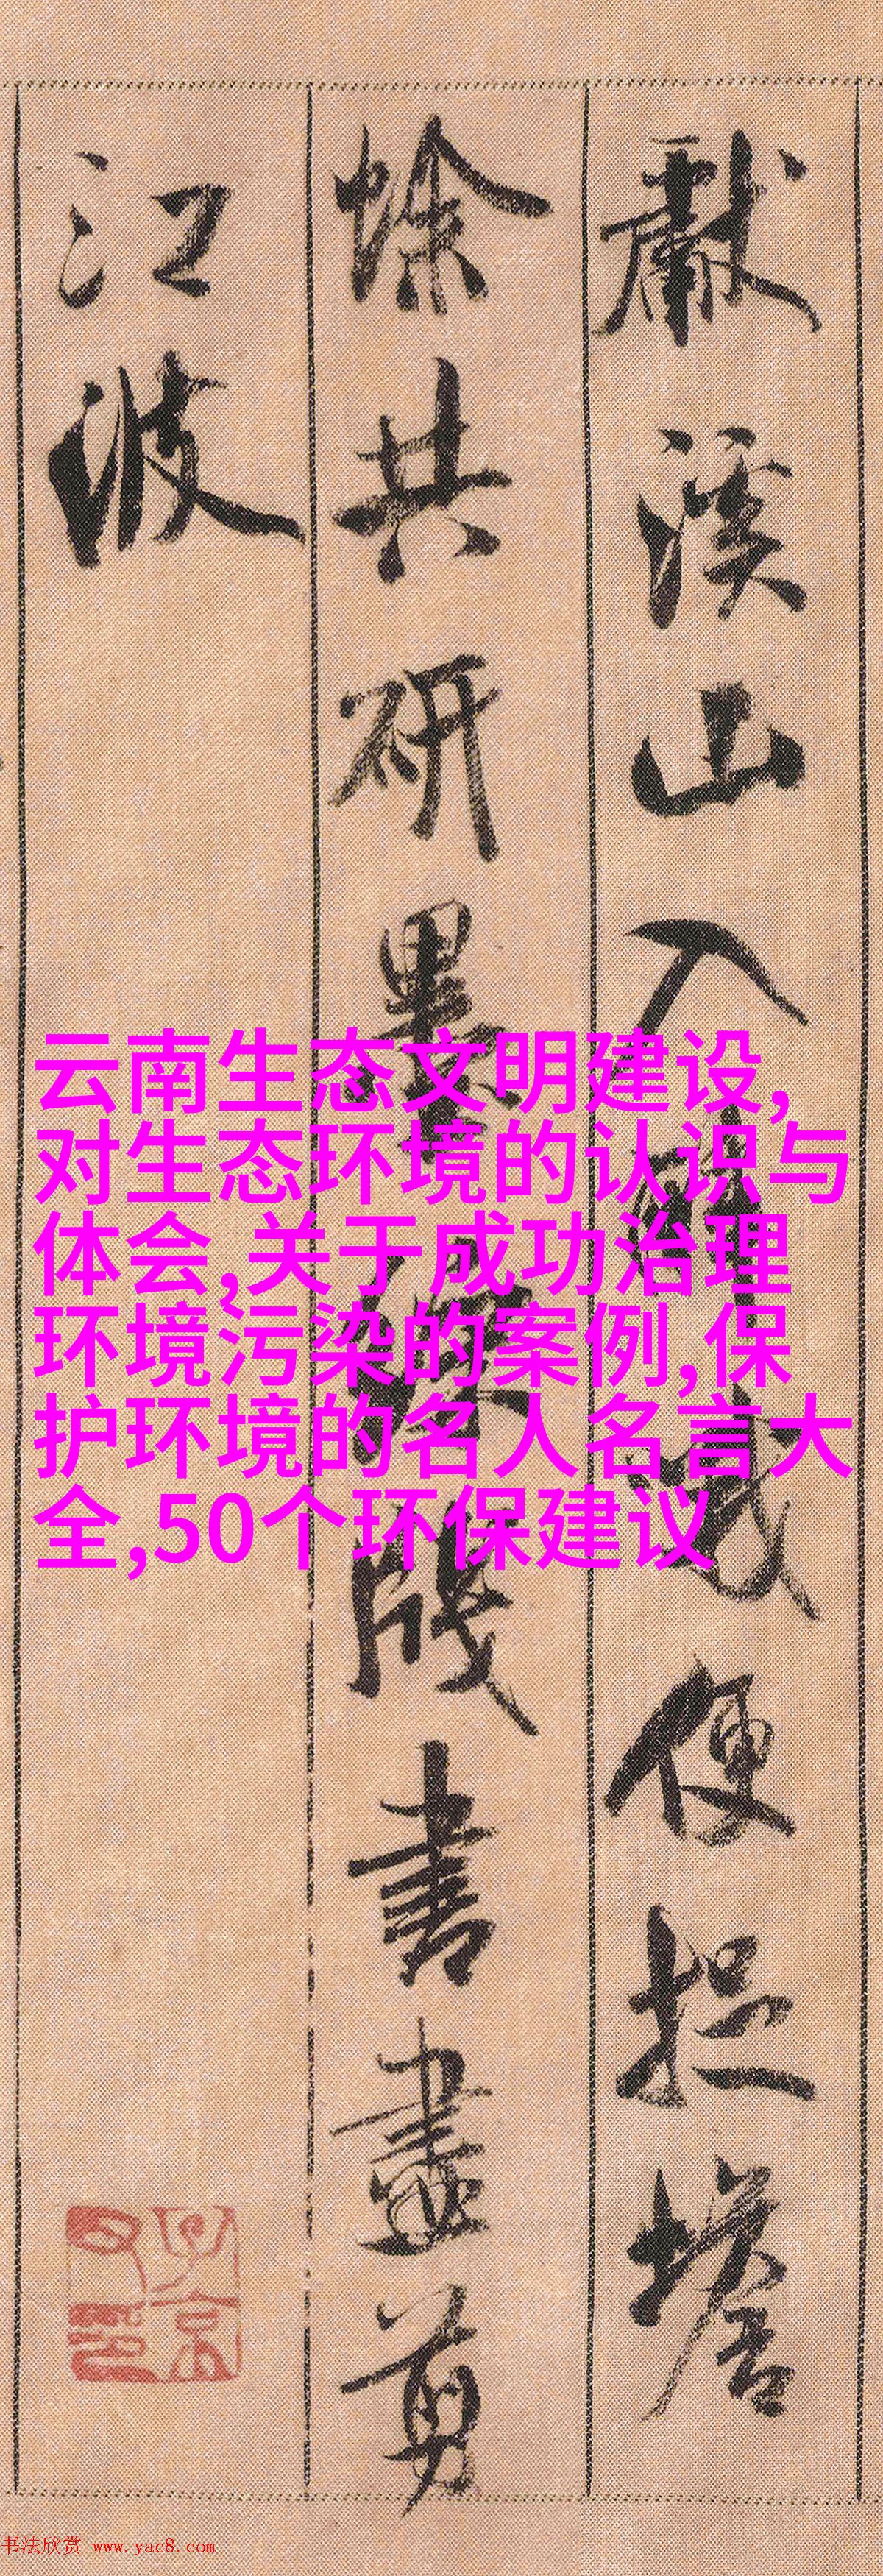 獻溪山入醉哦便捉蟾
蜍共研墨綵牋書盡剪
江波
云南生态文明建设,
对生态环境的认识与
体会,关于成功治理
环境污染的案例,保
护环境的名人名言大
全,50个环保建议
书法欣赏 www.yac8.com